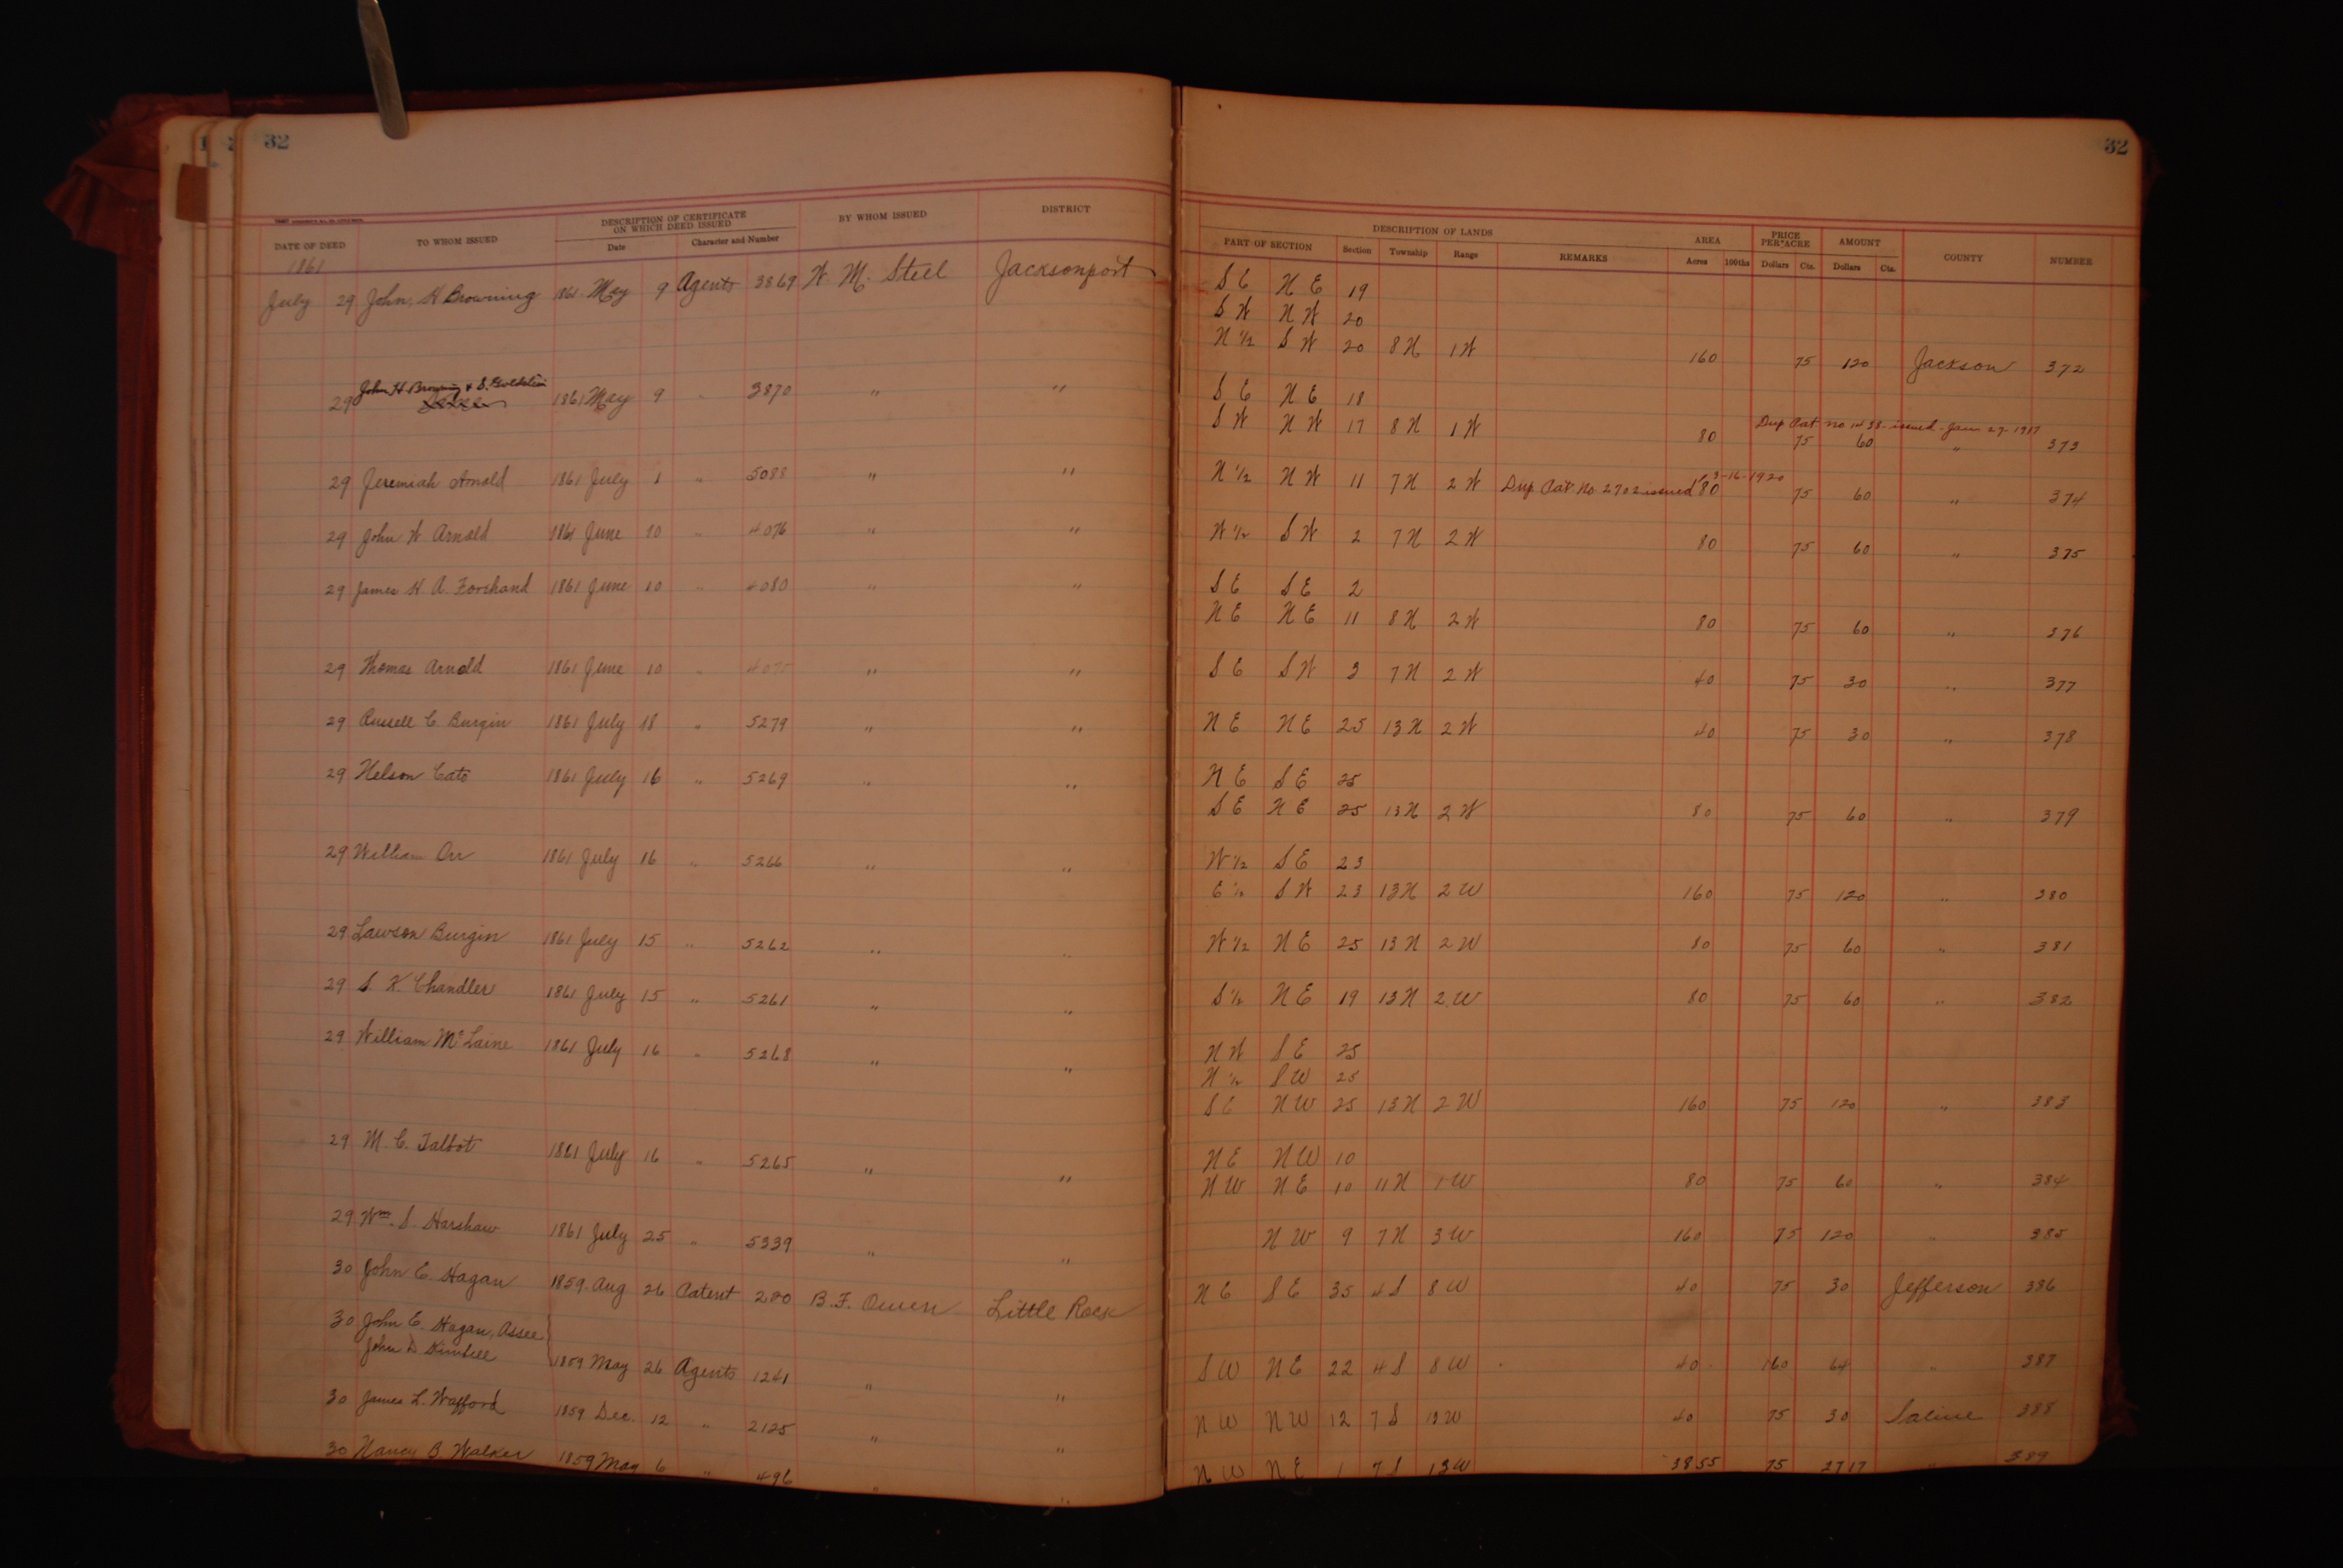 32
32
DATE OF DEED TO WHOM ISSUED DESCRIPTION OF CERTIFICATE ON WHICH DEED ISSUED Date Character and Number BY WHOM ISSUED DISTRICT
DESCRIPTION OF LANDS PART OF SECTION Section Township Range REMARKS AREA Acres 100ths PRICE PER ACRE Dollars Cts. AMOUNT Dollars Cts. COUNTY NUMBER
1861
July 29 John, H Browning 1861 May 9 Agents 3869 W M. Steel Jacksonport S E N E 19
S W N W 20
N 1/2 S W 20 8 N 1 W 160 75 120 Jackson 372
John H Browning & S. Goldstein
29 1861 May 9 " 3870 " " S E N E 18
Dup Pat no 1438 issued Jan 27 1917
S W N W 17 8 N 1 W 80 75 60 " 373
29 Jeremiah Arnold 1861 July 1 " 5088 " " N 1/2 N W 11 7 N 2 W Dup. Pat. No. 2702 issued 3-16-1920 80 75 60 " 374
29 John W Arnold 1861 June 10 " 4076 " " W 1/2 S W 2 7 N 2 W 80 75 60 " 375
29 James H. A. Forehand 1861 June 10 " 4080 " " S E S E 2
N E N E 11 8 N 2 W 80 75 60 " 376
29 Thomas Arnold 1861 June 10 " 4075 " " S E S W 3 7 N 2 W 40 75 30 " 377
29 Russell C. Burgin 1861 July 18 " 5279 " " N E N E 25 13 N 2 W 40 75 30 " 378
29 Nelson Cato 1861 July 16 " 5269 " " N E S E 25
S E N E 25 13 N 2 W 80 75 60 " 379
29 William Orr 1861 July 16 " 5266 " " W 1/2 S E 23
E 1/2 S W 23 13 N 2 W 160 75 120 " 380
29 Lawson Burgin 1861 July 15 " 5262 " " W 1/2 N E 25 13 N 2 W 80 75 60 " 381
29 S. K. Chandler 1861 July 15 " 5261 " " S 1/2 N E 19 13 N 2 W 80 75 60 " 382
29 William McLaine 1861 July 16 " 5268 " " N W S E 25
N 1/2 S W 25
S E N W 25 13 N 2 W 160 75 120 " 383
29 M. C. Talbot 1861 July 16 " 5265 " " N E N W 10
N W N E 10 11 N 1 W 80 75 60 " 384
29 Wm. S. Harshaw 1861 July 25 " 5339 " " N W 9 7 N 3 W 160 75 120 " 385
30 John E Hagan 1859 Aug 26 Patent 280 B. F. Owen Little Rock N E S E 35 4 S 8 W 40 75 30 Jefferson 386
30 John E. Hagan, Assee
John D Kimbell 1859 May 26 Agents 1241 " " S W N E 22 4 S 8 W 40 160 64 " 387
30 James L. Wafford 1859 Dec. 12 " 2125 " " N W N W 12 7 S 13 W 40 75 30 Saline 388
30 Nancy B. Walker 1859 May 6 " 496 " " N W N E 1 7 S 13 W 38 55 75 27 17 " 389